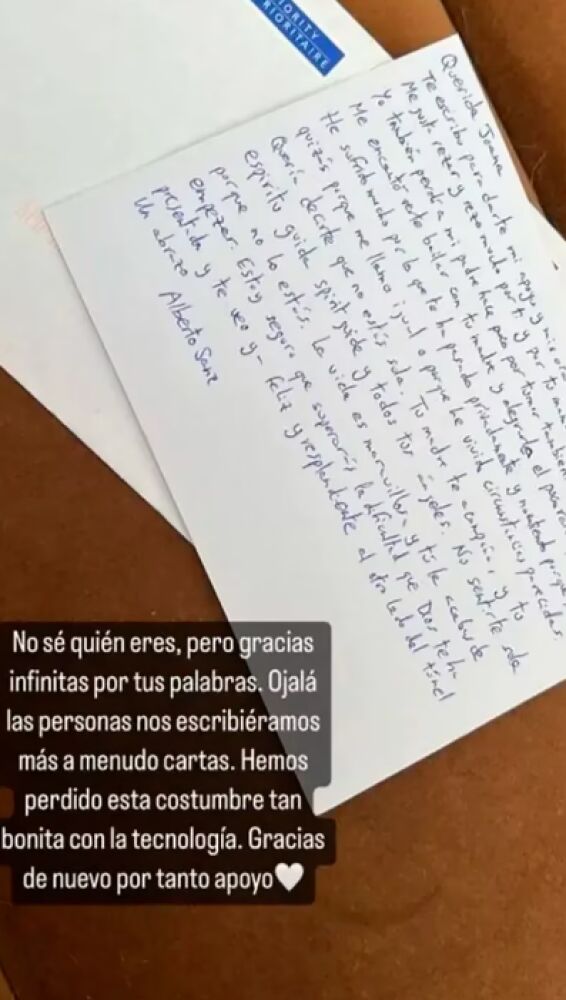 PRIORITY
PRIORITAIRE
Querida Joana
Te escribo para darte mi apoyo y mi
Me gusta rezar y rezo mucho por ti y por tu
Yo también perdí a mi padre hace poco por tumor también
Me encantó verte bailar con tu madre y alegrarle el
He sufrido mucho por lo que te ha pasado privadamente y
quizás porque me llamo igual o porque he vivido circunstancias parecidas
Quería decirte que no estás sola. Tu madre te acompaña, y tu
espíritu guida spirit guide y todos tus ángeles. No sentirte sola
porque no lo estás. La vida es maravillosa y tú la acabas de
empezar. Estoy seguro que superarás la dificultad que Dios te ha
presentado y te veo ya feliz y resplandeciente al otro lado del túnel
Un abrazo Alberto Sanz
No sé quién eres, pero gracias
infinitas por tus palabras. Ojalá
las personas nos escribiéramos
más a menudo cartas. Hemos
perdido esta costumbre tan
bonita con la tecnología. Gracias
de nuevo por tanto apoyo🤍